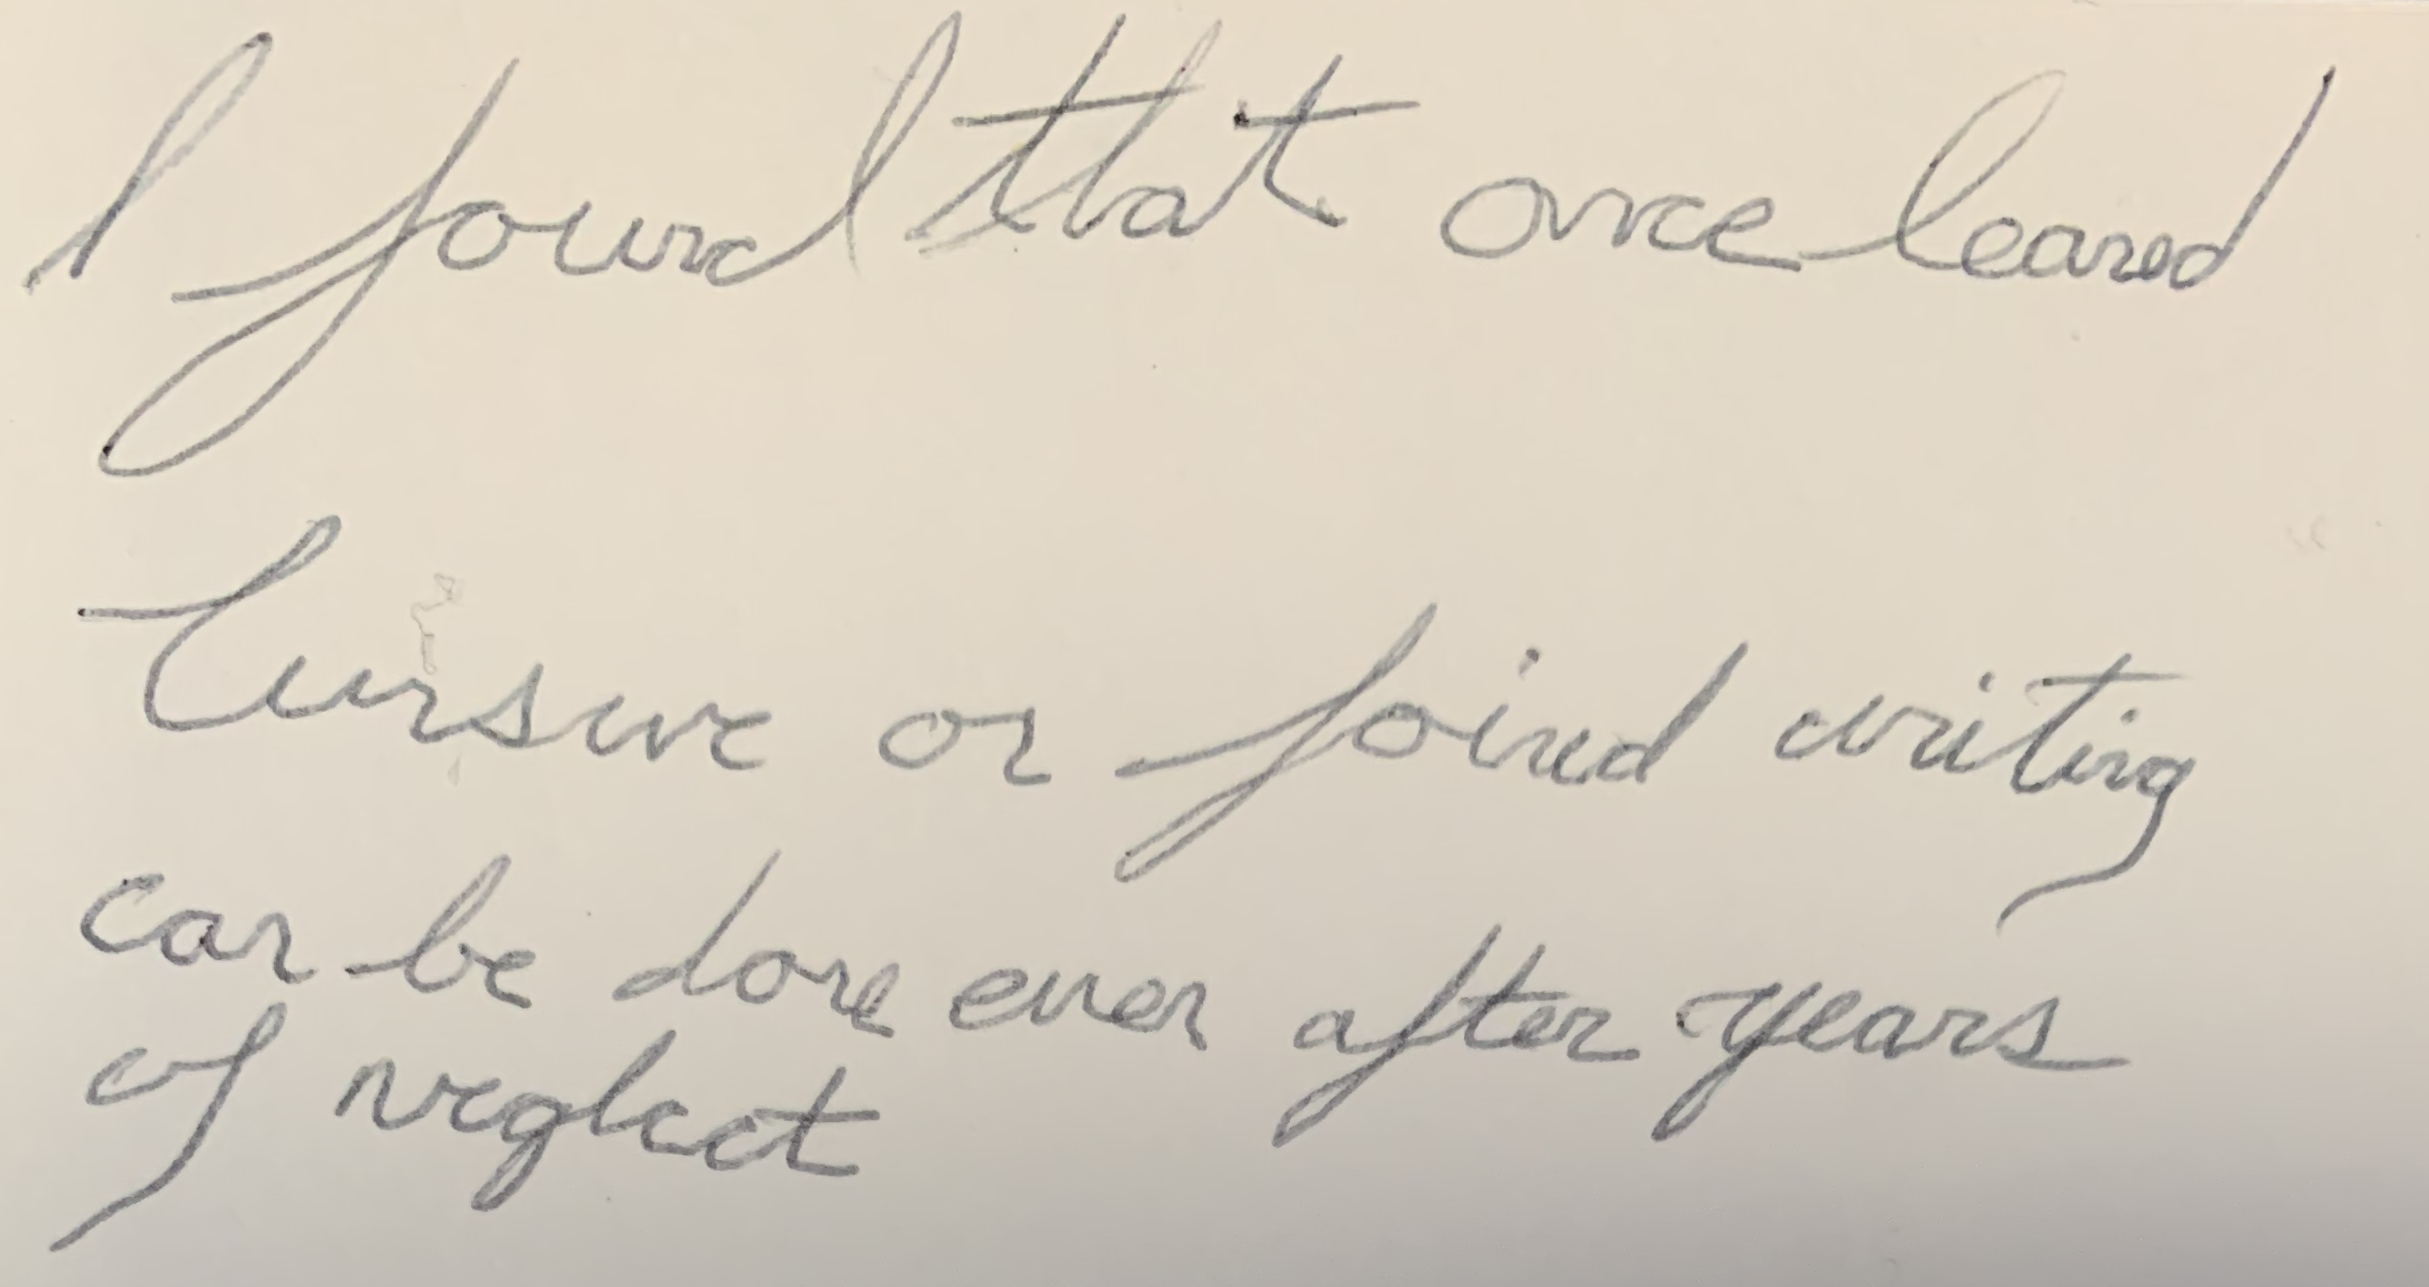 I found that once leared
Cursive or joined writing
can be done even after years
of neglect